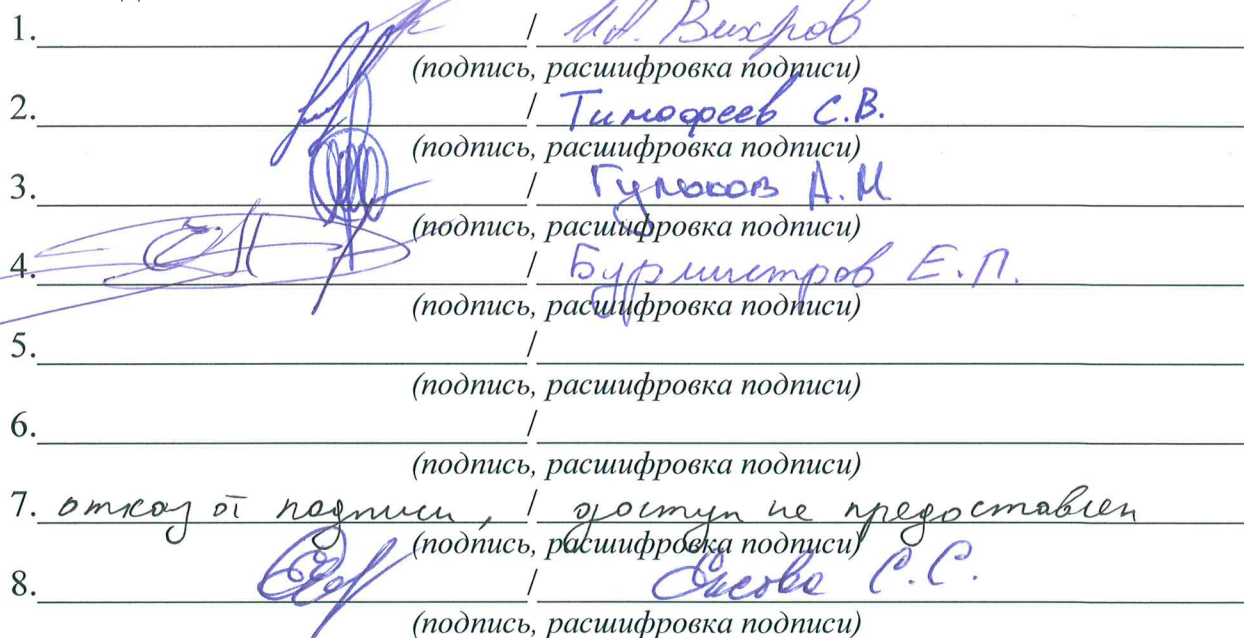 1. / И.А. Вихров
(подпись, расшифровка подписи)
2. / Тимофеев С.В.
(подпись, расшифровка подписи)
3. / Гумоков А.М
(подпись, расшифровка подписи)
4. / Бурмистров Е.П.
(подпись, расшифровка подписи)
5. /
(подпись, расшифровка подписи)
6. /
(подпись, расшифровка подписи)
7. отказ от подписи, / доступ не предоставлен
(подпись, расшифровка подписи)
8. / С.С.
(подпись, расшифровка подписи)